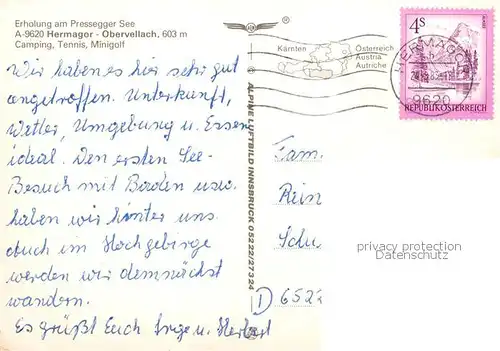 Erholung am Pressegger See
A-9620 Hermagor - Obervellach, 603 m
Camping, Tennis, Minigolf
Wir haben es hier sehr gut
angetroffen. Unterkunft,
Wetter, Umgebung u. Essen
ideal. Den ersten See-
Besuch mit Baden usw.
haben wir hinter uns.
Auch im Hochgebirge
werden wir demnächst
wandern.
Es grüßt Euch Inge u. Herbert
®
ALPINE LUFTBILD INNSBRUCK 05222/27324
Kärnten
Österreich
Austria
Autriche
HERMAGOR
9620
4s
REPUBLIK ÖSTERREICH
Fam.
Rein
Schu
D 6522
privacy protection
Datenschutz